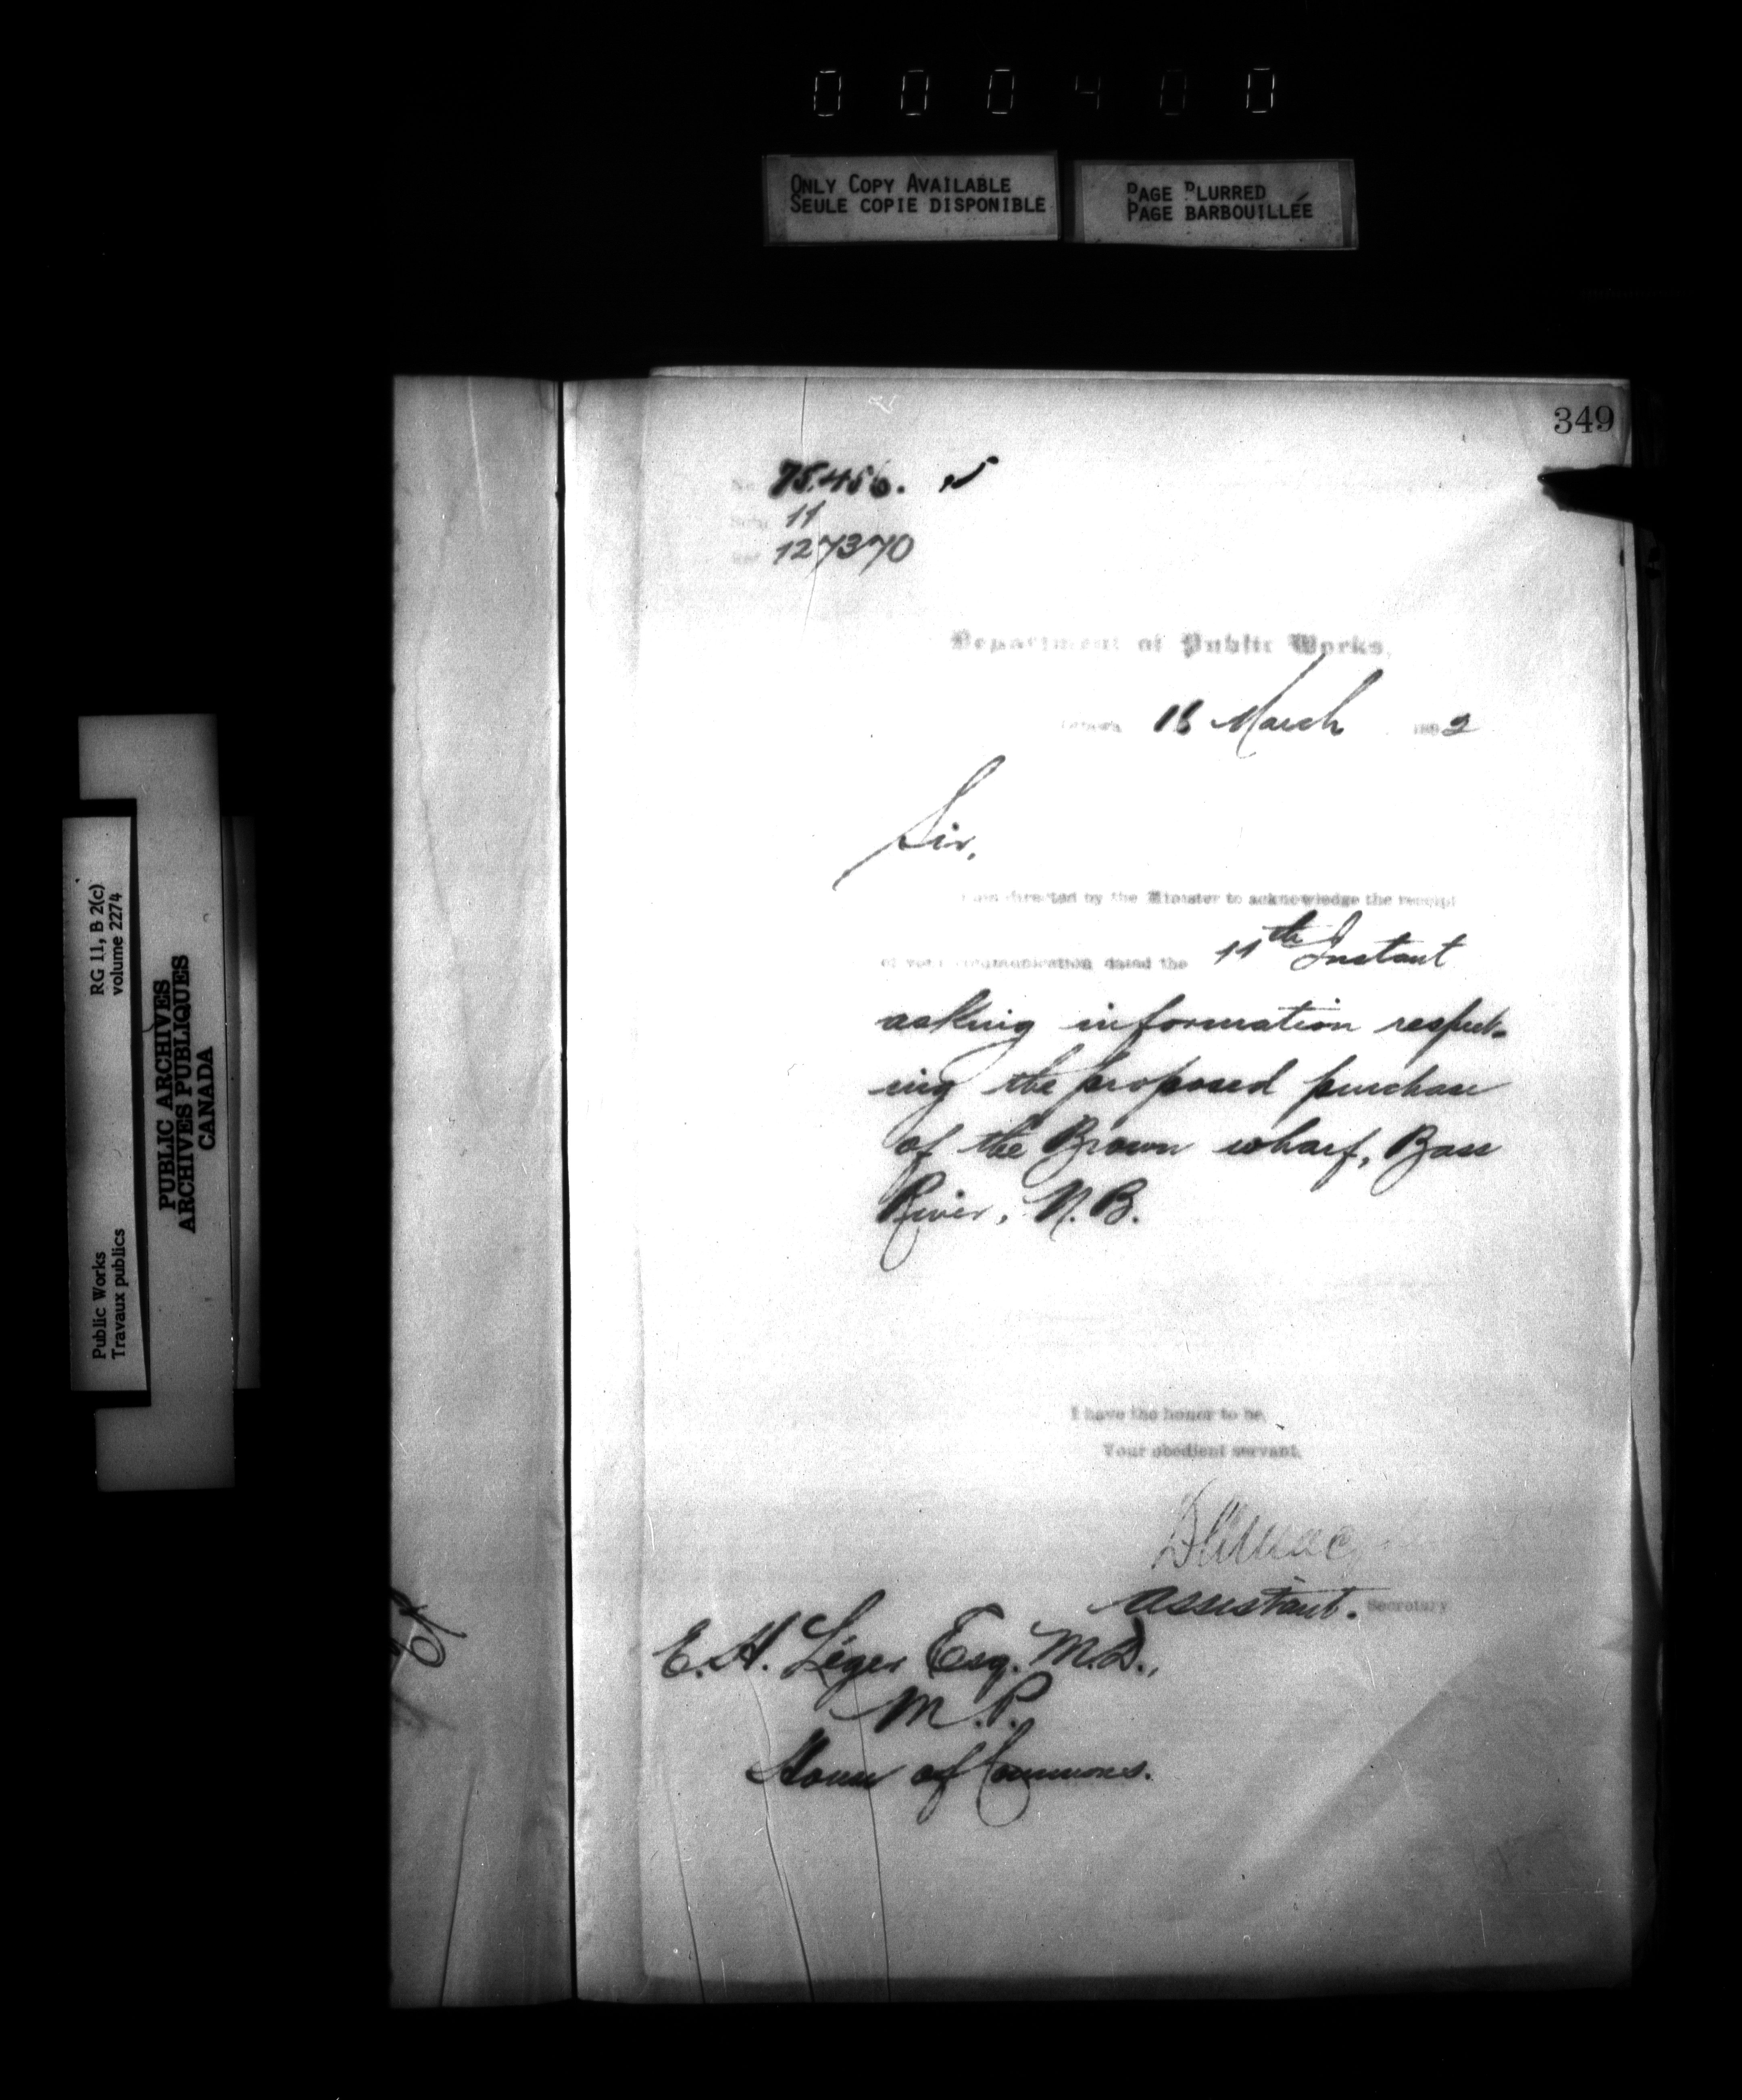 0 0 0 4 0 0
ONLY COPY AVAILABLE
SEULE COPIE DISPONIBLE
PAGE BLURRED
PAGE BARBOUILLÉE
349
No. 75,456.
Subj. 11
Ref. 127370
Department of Public Works,
Ottawa, 18 March 1892
Sir,
I am directed by the Minister to acknowledge the receipt
of your communication dated the 11th Instant
asking information respect-
ing the proposed purchase
of the Brown wharf, Bass
River, N.B.
I have the honor to be,
Your obedient servant,
Assistant. Secretary
E.H. Léger Esq. M.D.,
M.P.
House of Commons.
RG 11, B 2(c)
volume 2274
Public Works
Travaux publics
PUBLIC ARCHIVES
ARCHIVES PUBLIQUES
CANADA